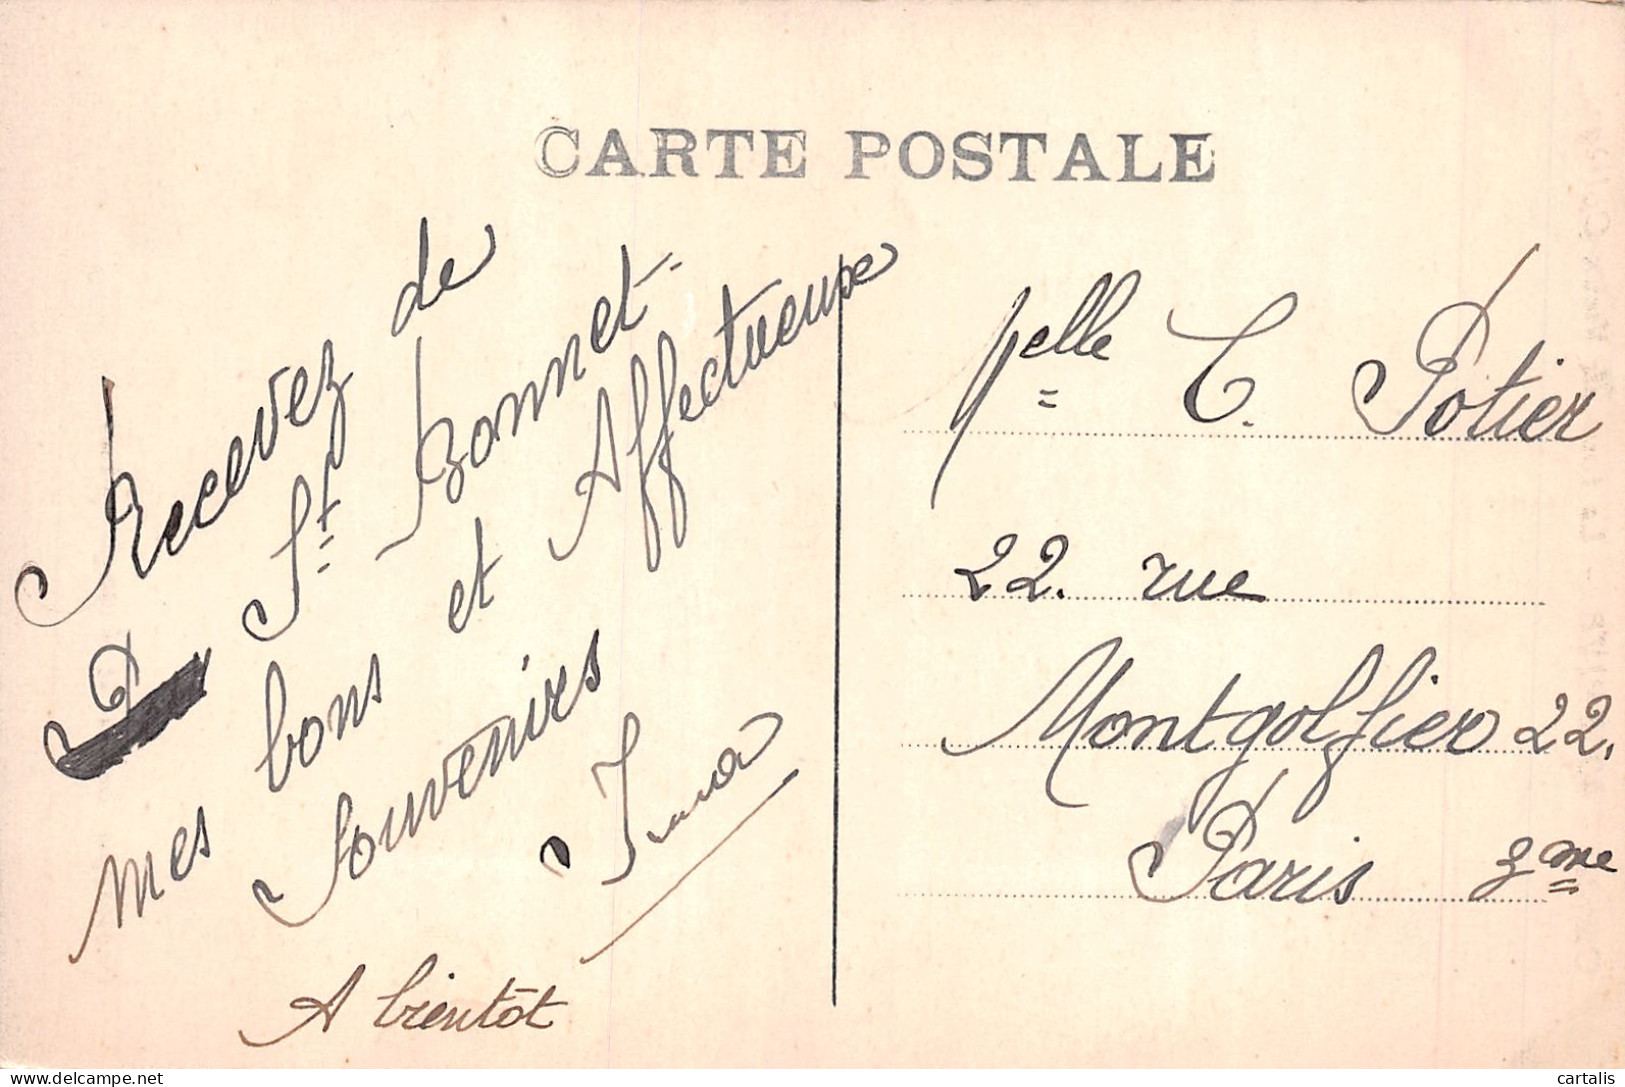 CARTE POSTALE
Recevez de
St Bonnet
mes bons et Affectueux
Souvenirs
A bientôt
Melle C. Potier
22. rue
Montgolfier 22.
Paris 3me
cartalis